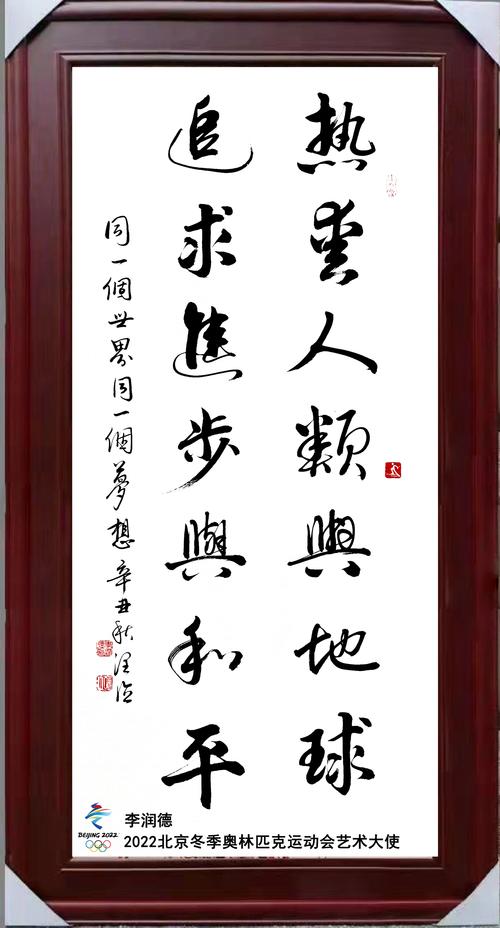 热爱人類與地球
追求進步與和平
同一個世界同一個夢想 辛丑秋润德
李润德
BEIJING 2022
2022北京冬季奥林匹克运动会艺术大使